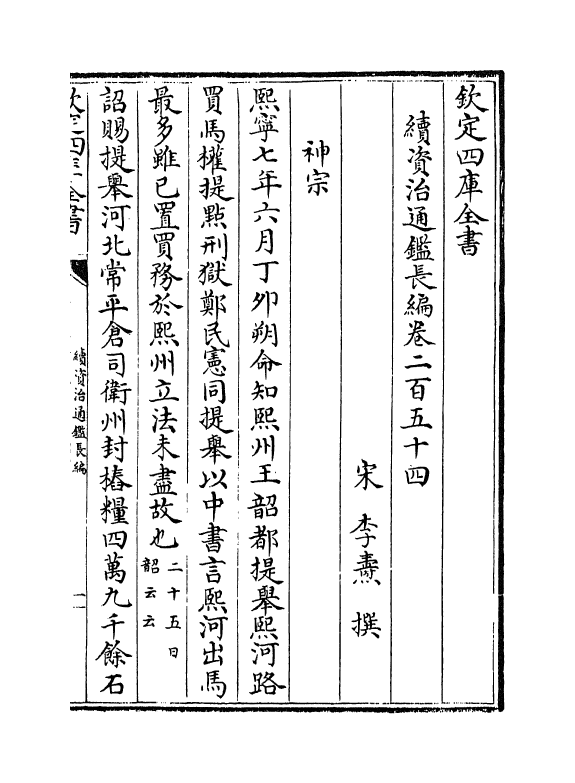 欽定四庫全書
續資治通鑑長編卷二百五十四
宋 李燾 撰
神宗
熙寧七年六月丁卯朔命知熙州王韶都提舉熙河路
買馬權提點刑獄鄭民憲同提舉以中書言熙河出馬
最多雖已置買務於熙州立法未盡故也二十五日韶云云
詔賜提舉河北常平倉司衛州封樁糧四萬九千餘石
欽定四庫全書
續資治通鑑長編
一